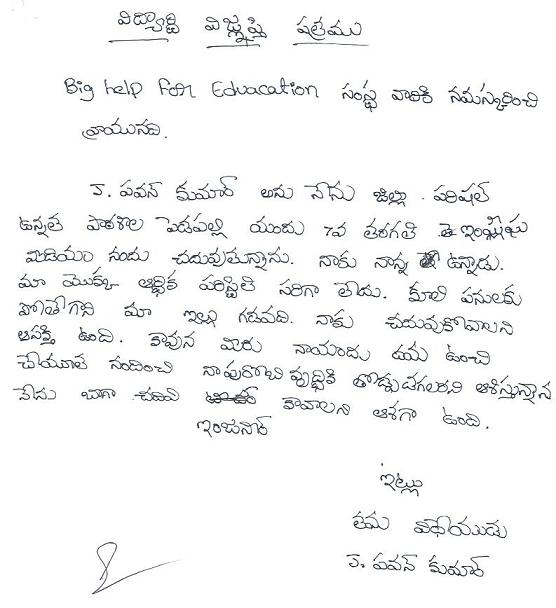 విద్యార్ధి విజ్ఞప్తి పత్రము
Big help For Eduacation సంస్థ వారికి నమస్కరించి
వ్రాయునది.
J. పవన్ కుమార్ అను నేను జిల్లా పరిషత్
ఉన్నత పాఠశాల పెదపల్లి యందు 7వ తరగతి ఇంగ్లీషు
మీడియం నందు చదువుతున్నాను. నాకు నాన్న ఉన్నాడు.
మా యొక్క ఆర్థిక పరిస్థితి సరిగా లేదు. కూలి పనులకు
పోతేగాని మా ఇల్లు గడవది. నాకు చదువుకోవాలని
ఆసక్తి ఉంది. కావున మీరు నాయందు దయ ఉంచి
చేయూత నందించి నా పురోభివృద్ధికి తోడ్పడగలరని ఆశిస్తున్నాన
నేను బాగా చదివి కావాలని ఆశగా ఉంది.
ఇంజనీర్
ఇట్లు
తమ విధేయుడు
J. పవన్ కుమార్